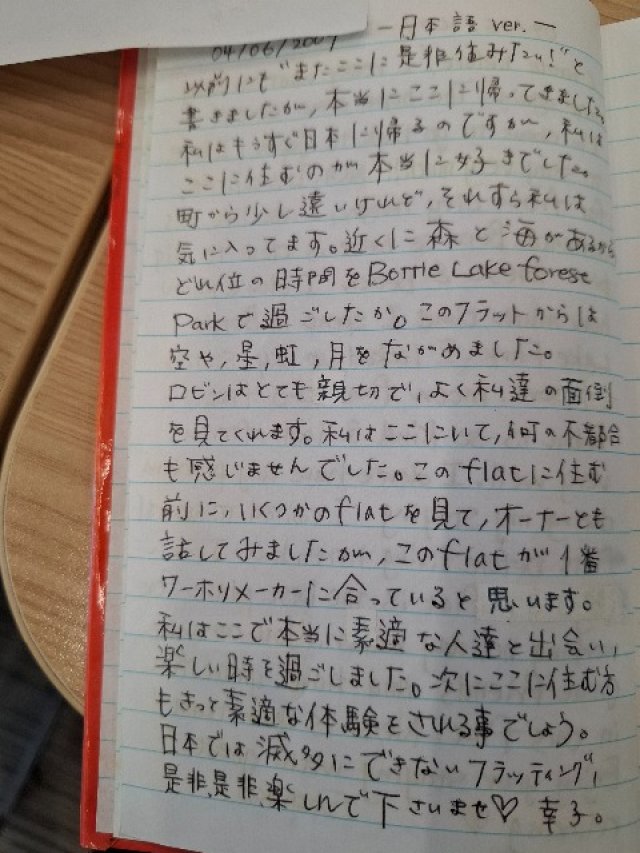 －日本語 ver.－
04/06/2009
以前にも"またここに是非住みたい!"と
書きましたが,本当にここに帰ってきました。
私はもうすぐ日本に帰るのですが,私は
ここに住むのが本当に好きでした。
町から少し遠いけれど,それすら私は
気に入ってます。近くに森と海があるから
どれ位の時間をBottle Lake forest
Parkで過ごしたか。このフラットからは
空や,星,虹,月をながめました。
ロビンはとても親切で,よく私達の面倒
を見てくれます。私はここにいて,何の不都合
も感じませんでした。このflatに住む
前に,いくつかのflatを見て,オーナーとも
話してみましたがm,このflatが1番
ワーホリメーカーに合っていると思います。
私はここで本当に素適な人達と出会い,
楽しい時を過ごしました。次にここに住む方
もきっと素適な体験をされる事でしょう。
日本では滅多にできないフラッティング,
是非,是非,楽しんで下さいませ♡ 幸子。